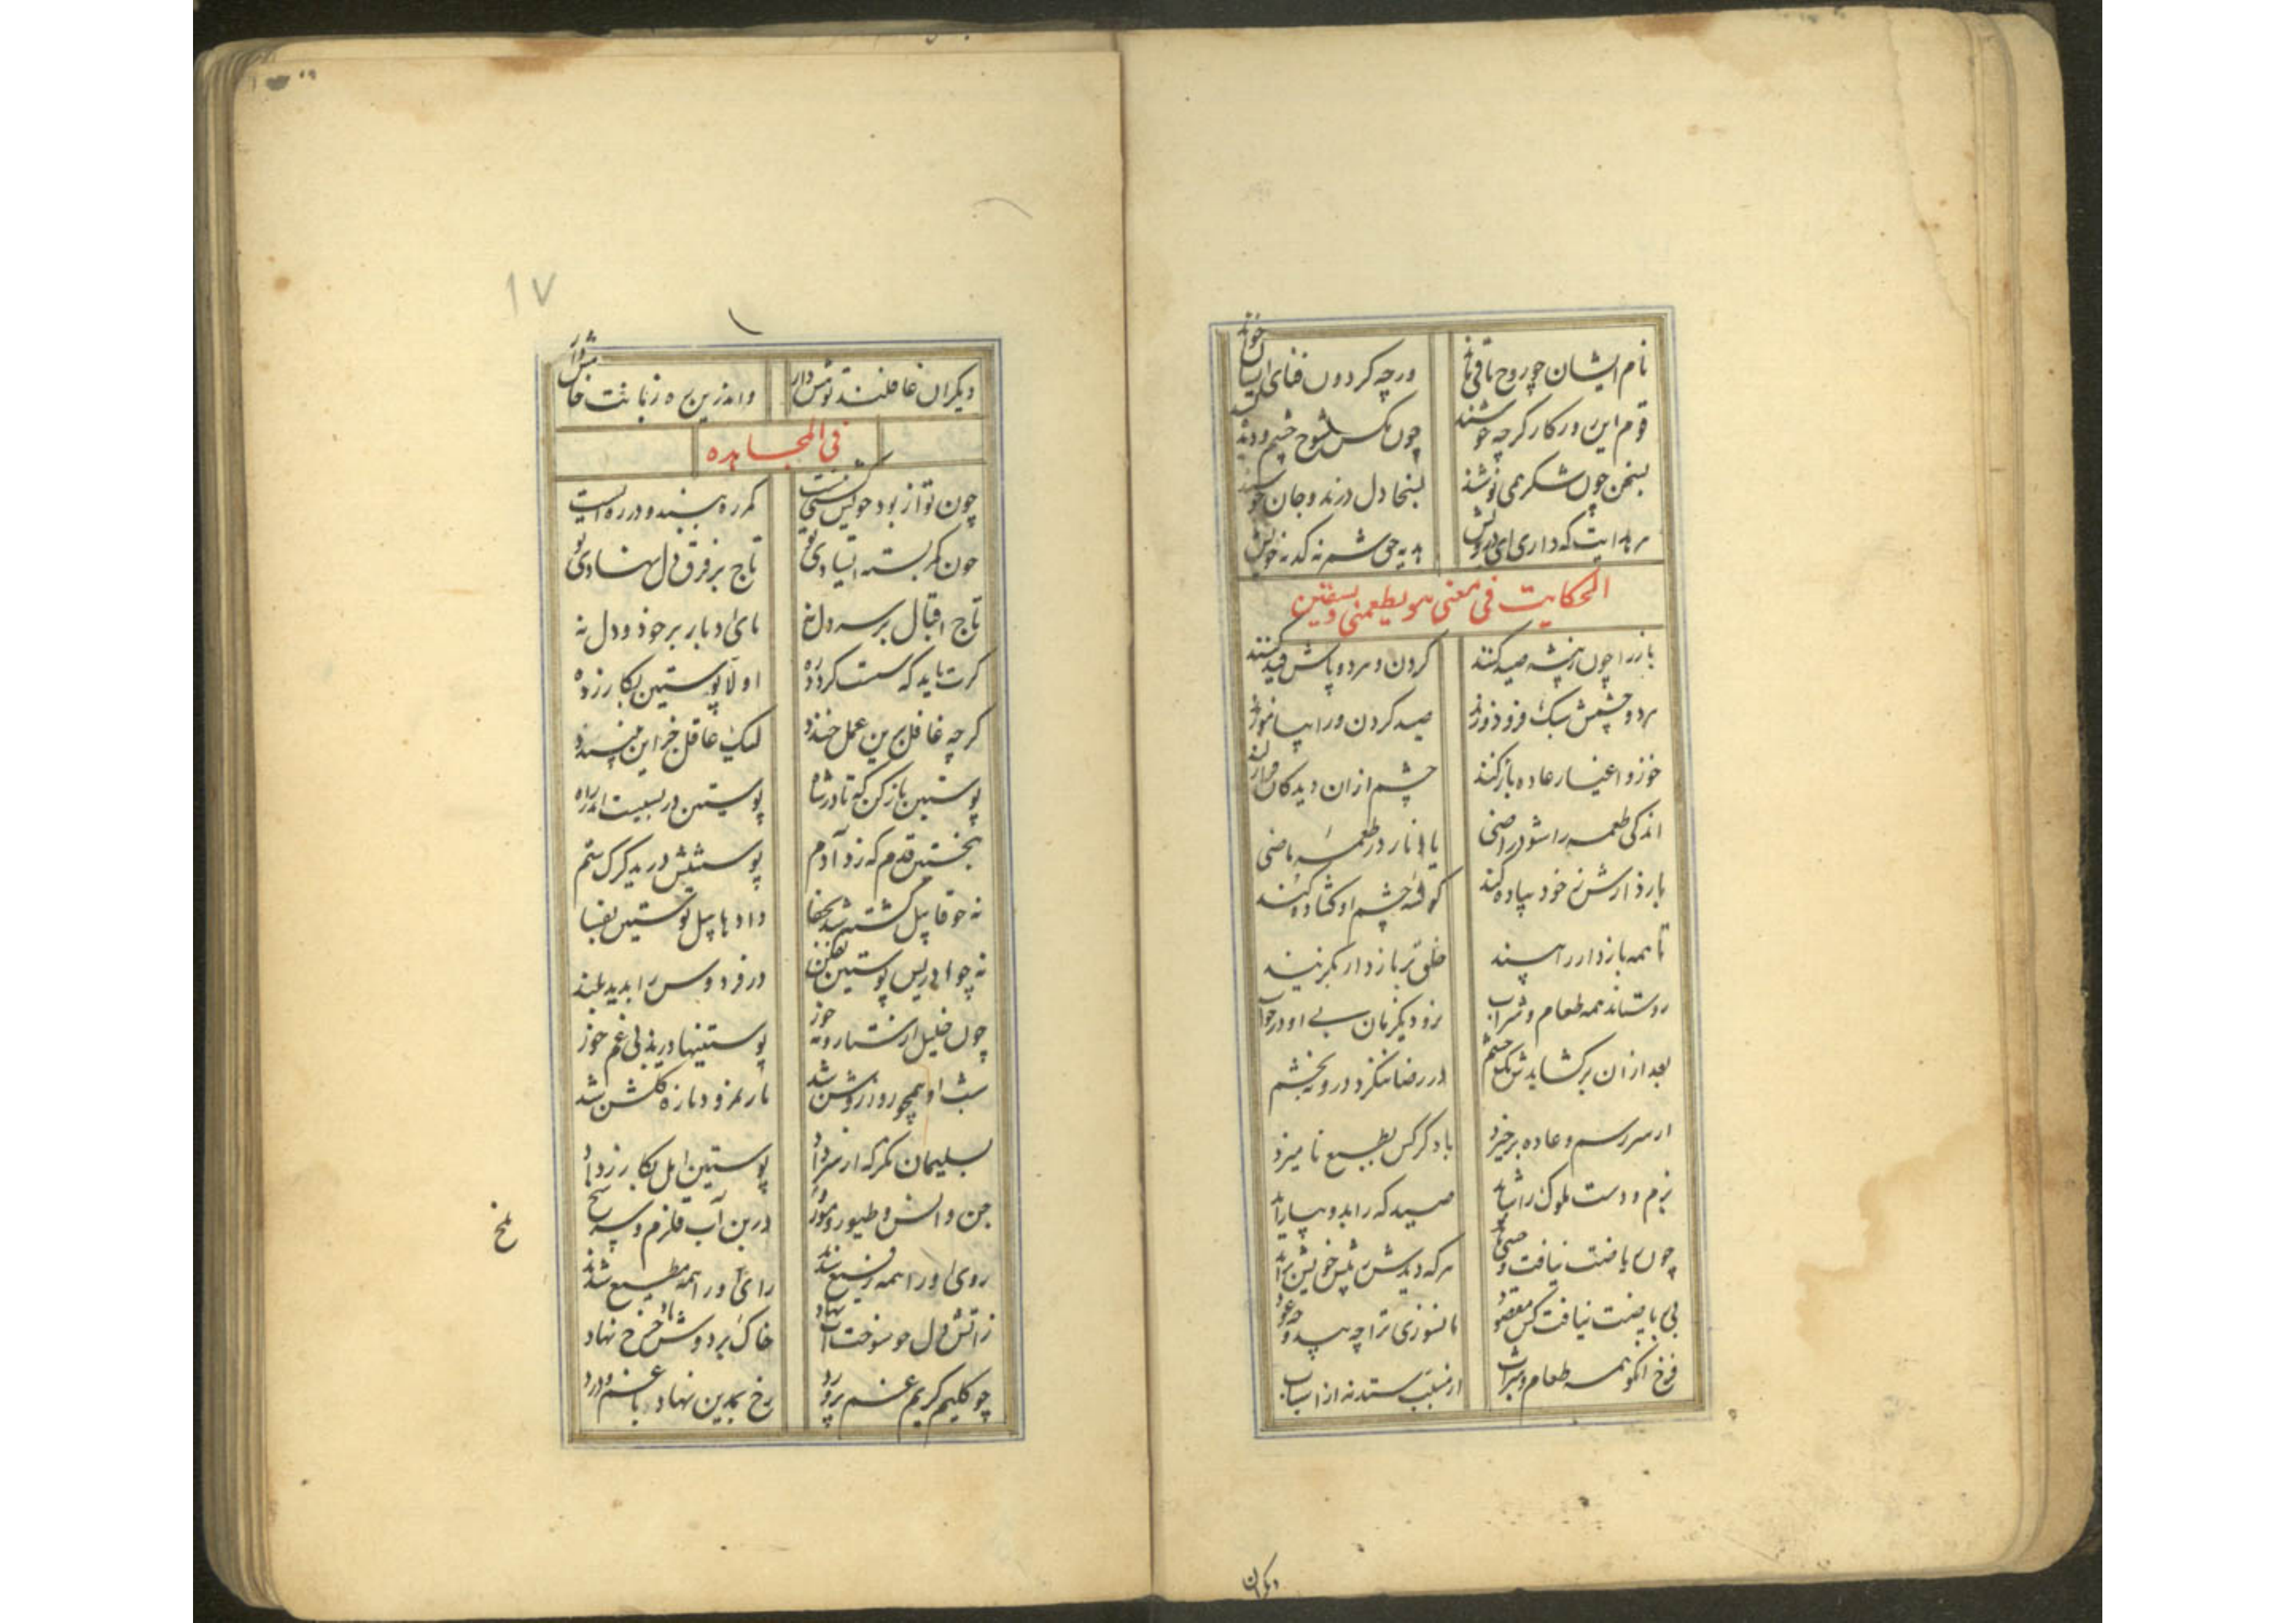 نام ایشان چو روح باقی ماند
ورچه گردون فنای ایشان خواند
قوم این در کار گرچه خوشند
چون مکس شوخ چشم و دیده
بسخن چون شکر همی نوشند
بسخا دل درند و جان جوشند
هر هدایت که داری ای درویش
هدیه حق شمر نه کدیه خویش
الحکایت فی معنی هو یطعمنی ویسقین
باز را چون ز بیشه صید کنند
گردن و هر دو پاش قید کنند
هر دو چشمش سبک فرو دوزند
صید کردن ورا بیاموزند
خو ز اغیار و عاده باز کند
چشم از آن دیدگان فراز کند
اندکی طعمه را شود راضی
یاد نارد ز طعمه ماضی
باز دارش ز خود پیاده کند
گوشه چشم او گشاده کند
تا همه بازدار را بیند
خلق بر بازدار نگزیند
زو ستاند همه طعام و شراب
نرود یک زمان بی او در خواب
بعد از آن برگشایدش یک چشم
در رضا بنگرد درو نه بخشم
از سر رسم و عاده برخیزد
با دگر کس بطبع نامیزد
بزم و دست ملوک را شاید
صیدگه را بدو بیاراید
چون ریاضت نیافت وحشی ماند
هر که دیدش ز پیش خویش براند
بی ریاضت نیافت کس مقصود
تا نسوزی ترا چه بید و چه عود
فرخ آنکو همه طعام و شراب
از مسبب ستد نه از اسباب
دیگران
دیگران غافلند تو هش دار
واندرین ره زبانت خامش دار
فی المجاهده
چون تو از بود خویش گشتی نیست
کمر ره ببند و در ره ایست
چون کمر بسته ایستادی تو
تاج بر فرق دل نهادی تو
تاج اقبال بر سر دل نه
پای ادبار بر خود و دل نه
گرت باید که سست گردد زه
اولا پوستین بگازر ده
گرچه غافل برین عمل خندد
لیک عاقل جز این نپسندد
پوستین باز کن که تا در شاه
پوستین در بسیست اندر راه
بنخستین قدم که زد آدم
پوستینش درید گرگ ستم
نه چو قابیل تشنه شد بجفا
داد هابیل پوستین بفنا
نه چو ادریس پوستین بفکند
در فردوس را بدید بلند
چون خلیل از ستاره و مه و خور
پوستینها درید بی غم خور
شب او همچو روز روشن شد
نار نمرود تازه گلشن شد
بسلیمان نگر که از سر داد
پوستین امل بگازر داد
جن و انس و طیور و مور و ملخ
در بن آب قلزم و سر شخ
روی او را همه رفیع شدند
رای او را همه مطیع شدند
ز آتش دل چو سوخت آب نهاد
خاک بر دوش باد چرخ نهاد
چو کلیم کریم غم پرورد
رخ بمدین نهاد با غم و درد
۱۷